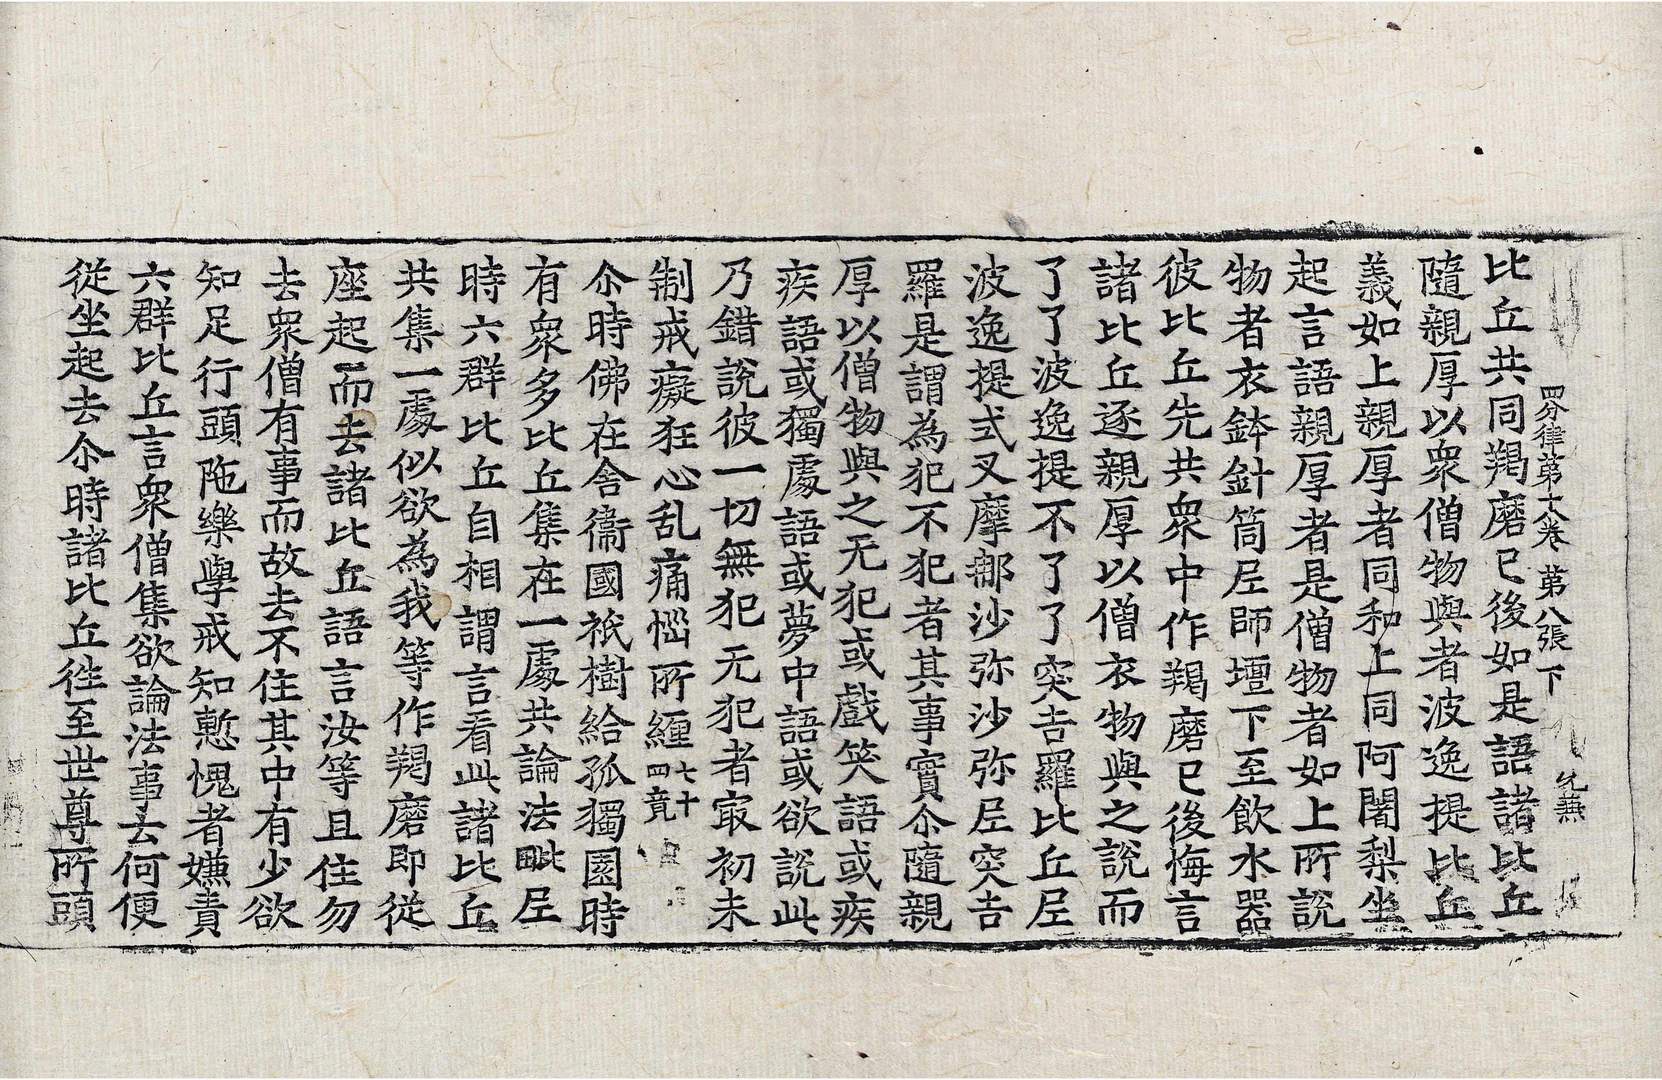 四分律第十八卷 第八張 下
比丘共同羯磨已後如是語諸比丘
隨親厚以衆僧物與者波逸提比丘
義如上親厚者同和上同阿闍梨坐
起言語親厚者是僧物者如上所説
物者衣鉢針筒尼師壇下至飲水器
彼比丘先共衆中作羯磨已後悔言
諸比丘逐親厚以僧衣物與之説而
了了波逸提不了了突吉羅比丘尼
波逸提式叉摩那沙弥沙弥尼突吉
羅是謂為犯不犯者其事實尒隨親
厚以僧物與之无犯或戲笑語或疾
疾語或獨處語或夢中語或欲説此
乃錯説彼一切無犯无犯者㝡初未
制戒癡狂心乱痛惱所纏七十四竟
尒時佛在舍衞國祇樹給孤獨園時
有衆多比丘集在一處共論法毗尼
時六群比丘自相謂言看此諸比丘
共集一處似欲為我等作羯磨即從
座起而去諸比丘語言汝等且住勿
去衆僧有事而故去不住其中有少欲
知足行頭陁樂學戒知慙愧者嫌責
六群比丘言衆僧集欲論法事云何便
從坐起去尒時諸比丘往至世尊所頭